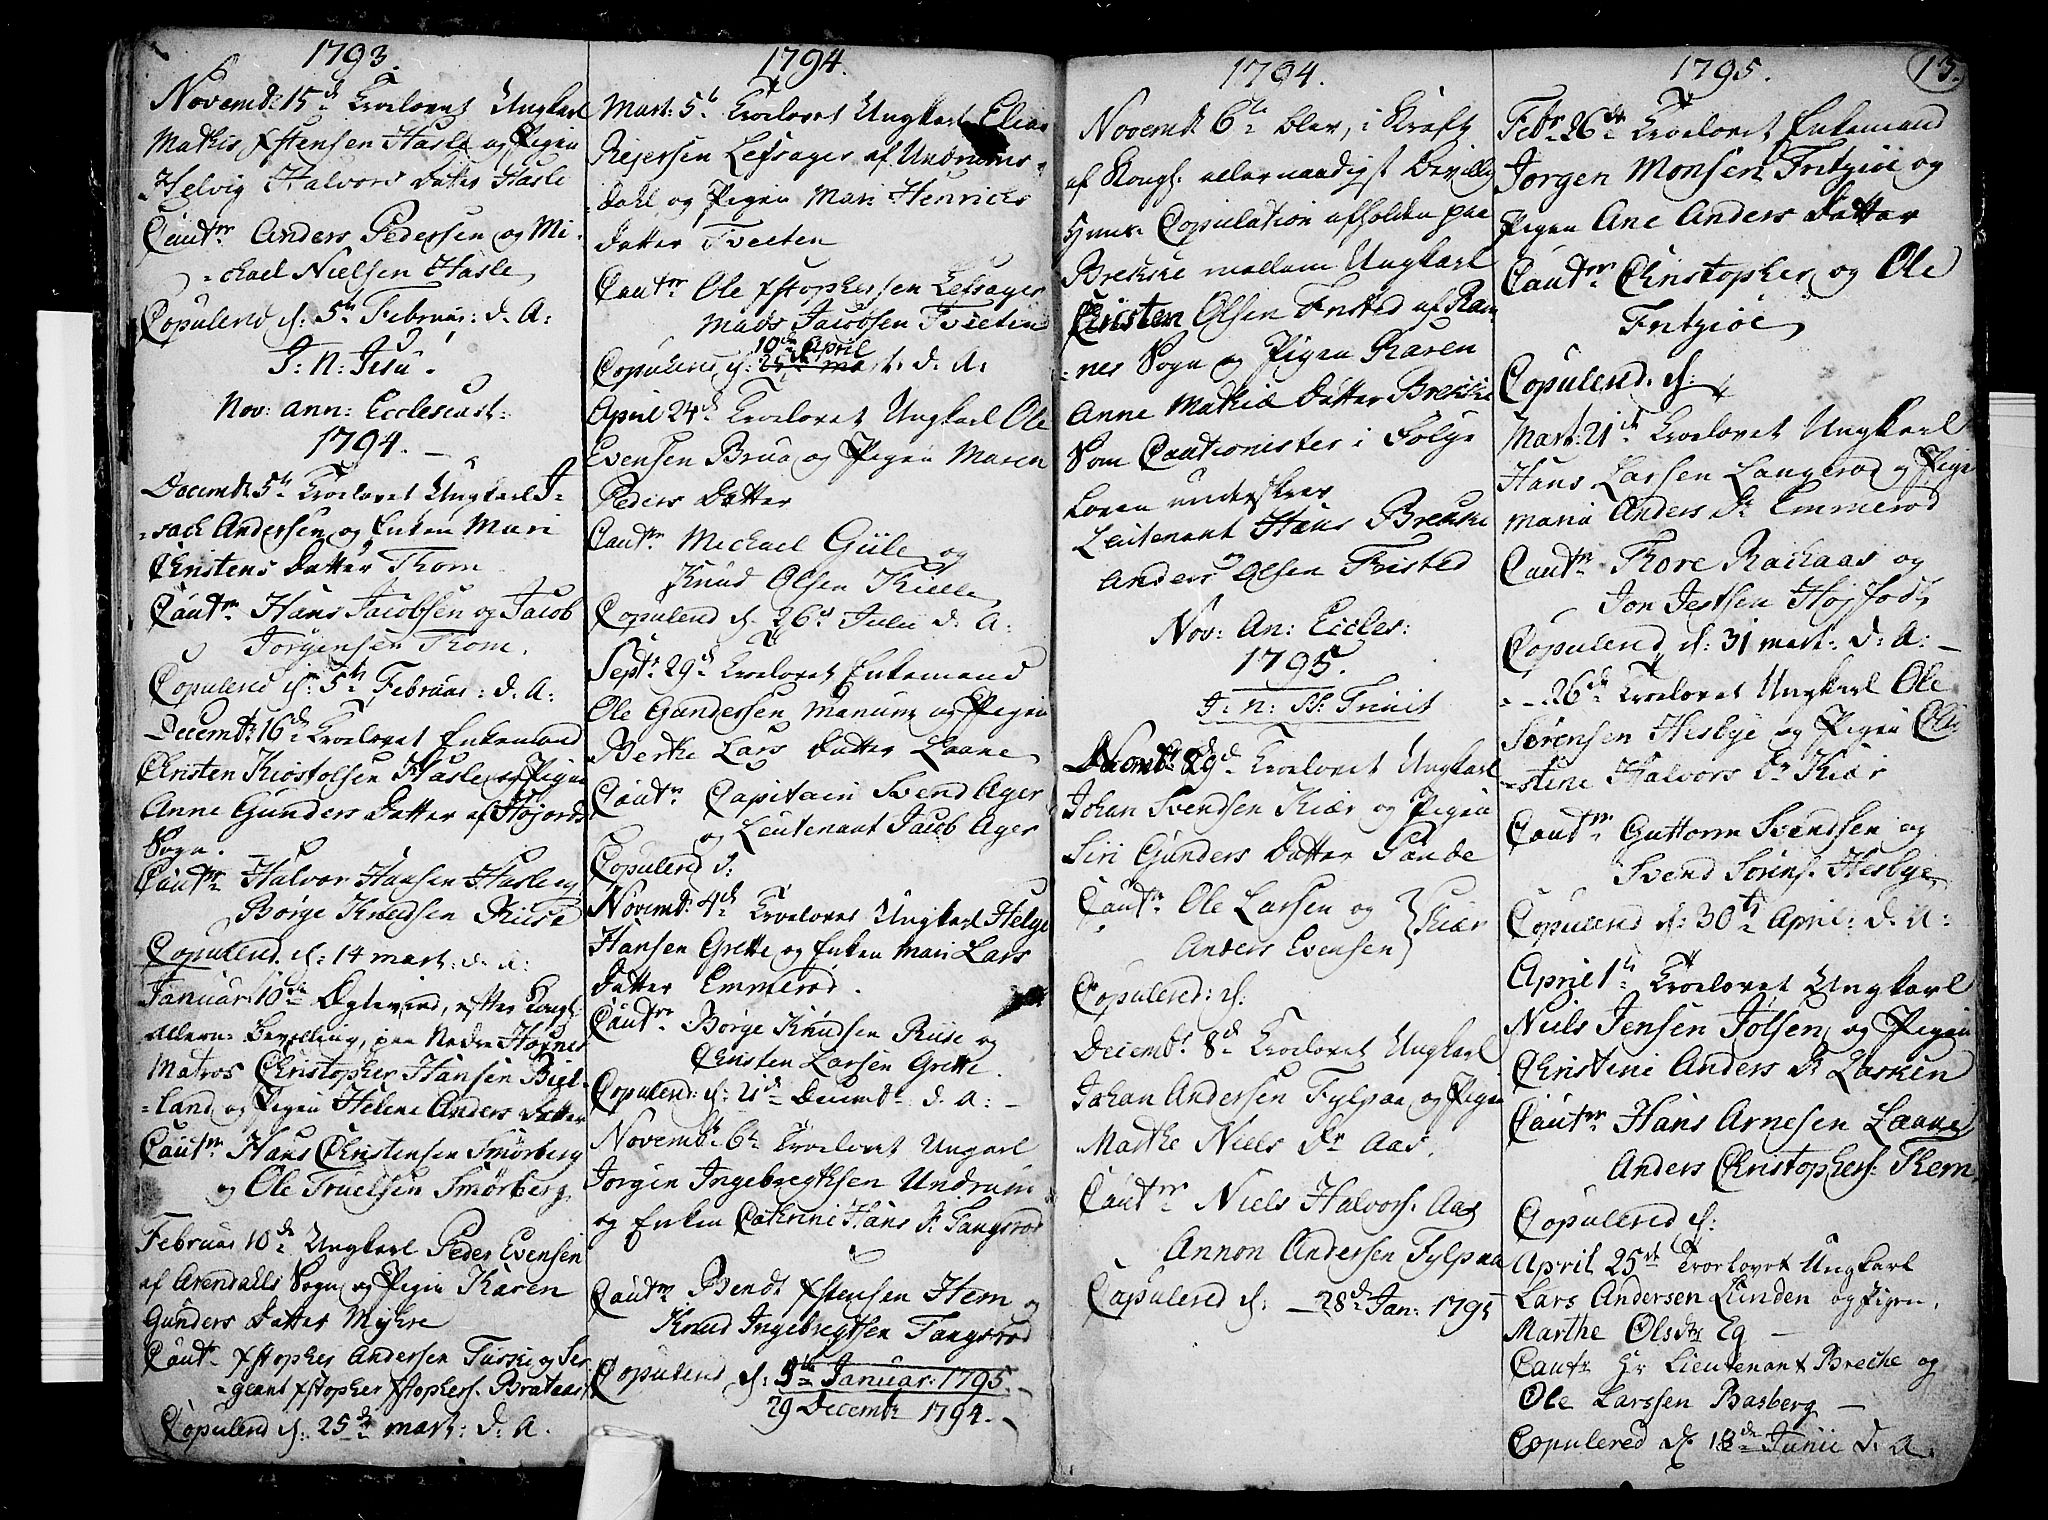 1793.
Novembr 15de Troelovet Ungkarl
Mathis Xstensen Hasle og Pigen
Helvig Halvors Datter Hasle
Cautnr Anders Pedersen og Mi-
-chael Nielsen Hasle
Copulered d: 5te Februar: d. A:
I: n: Jesu!
Nov: ann: Ecclesiast:
1794. —
Decembr 5te Troelovet Ungkarl I-
-sach Andersen og Enken Mari
Christens Datter Thom
Cautnr Hans Jacobsen og Jacob
Jørgensen Thom.
Copulered d: 5te Februar: d. A:
Decembr 16de Troelovet Enkemand
Christen Kiøstolsen Hasle og Pigen
Anne Gunders Datter af Højords
Sogn. —
Cautnr Halvor Hansen Hasle og
Børge Knudsen Riise
Copulered d: 14 Mart: d. A:
Januar 10de Ægtevied, efter Kongl:
Allern: Bevilling, paa Nedre Højnes
Matros Christopher Hansen Biel-
-land og Pigen Helene Anders Datter
Cautnr Hans Christensen Smørberg
og Ole Truelsen Smørberg
Februar 10de Ungkarl Peder Evensen
af Arendalls Sogn og Pigen Karen
Gunders Datter Myhre
Cautnr Xstopher Andersen Turske og Ser-
-geant Xstopher Xstophers: Brataas
Copulered d: 25de Mart: d: A.
1794.
Mart: 5te Troelovet Ungkarl Elias
Rejersen Lefsager af Undrums-
-dahl og Pigen Mari Henrichs
Datter Tveeten
Cautnr Ole Xstophersen Lefsager
Mads Jacobsen Tveeten
10de April
Copulered d: 25de Mart. d. A.
April 24de Troelovet Ungkarl Ole
Evensen Brua og Pigen Maren
Peders Datter
Cautnr Michael Giile og
Knud Olsen Thielle
Copulered d. 26de Julii d. A:
Septr 29de Troelovet Enkemand
Ole Gundersen Manum og Pigen
Berthe Lars Datter Laane
Cautnr Capitain Svend Ager
og Leutenant Jacob Ager
Copulered d:
Novembr 4de Troelovet Ungkarl Helge
Hansen Grette og Enken Mari Lars
Datter Emmerød.
Cautnr Børge Knudsen Riise og
Christen Larsen Grette.
Copulered: d: 21de Decembr d. A: —
Novembr 6te Troelovet Ungarl
Jørgen Ingebregthsen Undrum
og Enken Cathrine Hans Dr Tangsrød
Cautnr Bendt Xstensen Hem og
Knud Ingebregtsen Tangsrød
Copulered d: 9de Januar: 1795. —
29 Decembr 1794. —
1794.
Novembr 6te blev, i Kraft
af Kongl: allernaadigst Bevilling
Huus Copulation afholden paa
Brekke mellem Ungkarl
Christen Olsen Fristed af Ram-
-nes Sogn og Pigen Karen
Anne Mathiæ Datter Brekke
Som Cautionister i Følge
Loven underskrev
Leutenant Hans Brekke
og
Anders Olsen Fristed
Nov: An: Eccles:
1795.
I: n: SS: Trinit
Novembr 29de Troelovet Ungkarl
Johan Svendsen Kiær og Pigen
Siri Gunders Datter Sande
Cautnr Ole Larsen og
Anders Evensen } Kiær
Copulered: d:
Decembr 8de Troelovet Ungkarl
Johan Andersen Fylpaa og Pigen
Marthe Niels Dr Aas.
Cautnr Niels Halvors: Aas
Annon Andersen Fylpaa
Copulered d: — 28de Jan: 1795
1795.
13.
Febr 26de Troelovet Enkemand
Jørgen Monsen Fritziøe og
Pigen Ane Anders Datter
Cautnr Christopher og Ole
Fritziøe
Copulered. d:
Mart: 21de Troelovet Ungkarl
Hans Larsen Langerød og Pigen
Maria Anders Dr Emmerød
Cautnr Thore Rachaas og
Jon Jensen Højfod
Copulered d: 31 Mart: d: A: —
- - 26de Troelovet Ungkarl Ole
Sørensen Hesbye og Pigen Chri-
-stine Halvors Dr Kiær
Cautnr Guttorm Svendsen og
Svend Sørens: Hesbye
Copulered d: 30te April: d. A:
April 1te Troelovet Ungkarl
Niels Jensen Jølsen og Pigen
Christine Anders Dr Lasken
Cautnr Hans Arnesen Laane
Anders Christophers: Them
Copulered d:
April 25de Troelovet Ungkarl
Lars Andersen Lunden og Pigen
Marthe Olsdtr Eg —
Cautr Hr Lieutenant Breche og
Ole Larssen Basberg —
Copulered d. 18de Junii d. A.